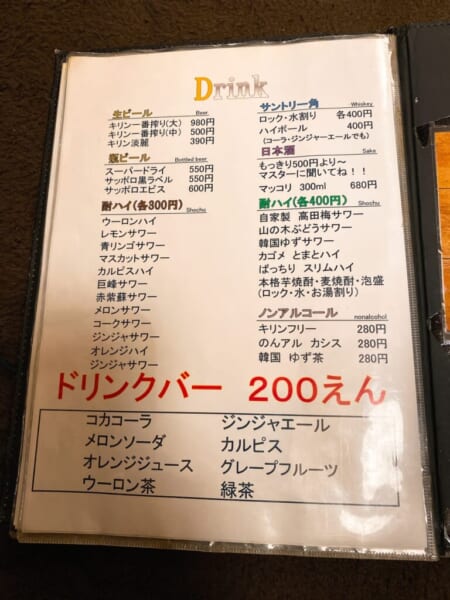 Drink
生ビール Beer
キリン一番搾り(大) 980円
キリン一番搾り(中) 500円
キリン淡麗 390円
瓶ビール Bottled beer
スーパードライ 550円
サッポロ黒ラベル 550円
サッポロエビス 600円
酎ハイ(各300円) Shochu
ウーロンハイ
レモンサワー
青リンゴサワー
マスカットサワー
カルピスハイ
巨峰サワー
赤紫蘇サワー
メロンサワー
コークサワー
ジンジャサワー
オレンジハイ
ジンジャサワー
サントリー角 Whiskey
ロック・水割り 各400円
ハイボール 400円
(コーラ・ジンジャーエールでも)
日本酒 Sake
もっきり500円より〜
マスターに聞いてね！！
マッコリ 300ml 680円
酎ハイ(各400円) Shochu
自家製 高田梅サワー
山の木ぶどうサワー
韓国ゆずサワー
カゴメ とまとハイ
ぱっちり スリムハイ
本格芋焼酎・麦焼酎・泡盛
(ロック・水・お湯割り)
ノンアルコール nonalcohol
キリンフリー 280円
のんアル カシス 280円
韓国 ゆず茶 280円
ドリンクバー 200えん
コカコーラ ジンジャエール
メロンソーダ カルピス
オレンジジュース グレープフルーツ
ウーロン茶 緑茶